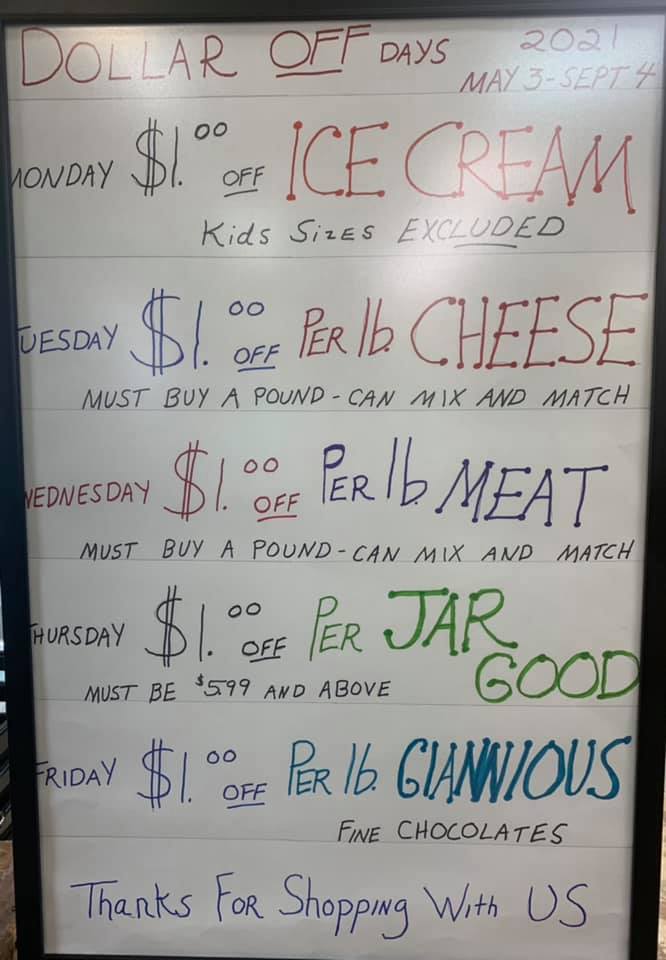 DOLLAR OFF DAYS 2021
MAY 3 - SEPT 4
MONDAY $1.00 OFF ICE CREAM
Kids Sizes EXCLUDED
TUESDAY $1.00 OFF PER lb. CHEESE
MUST BUY A POUND - CAN MIX AND MATCH
WEDNESDAY $1.00 OFF PER lb. MEAT
MUST BUY A POUND - CAN MIX AND MATCH
THURSDAY $1.00 OFF PER JAR
GOOD
MUST BE $5.99 AND ABOVE
FRIDAY $1.00 OFF PER lb. GIANNIOUS
FINE CHOCOLATES
Thanks For Shopping With US